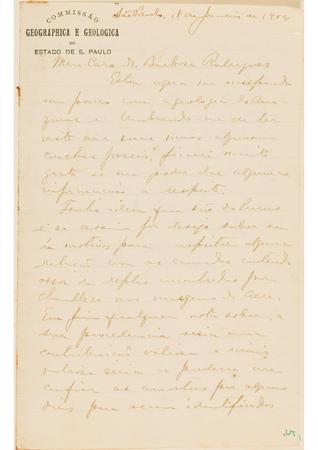 COMMISSÃO
GEOGRAPHICA E GEOLOGICA
DO
ESTADO DE S. PAULO
São Paulo, 11 de Janeiro de 1904
Meu Caro Dr. Barbosa Rodrigues
Estou agora me occupando
um pouco com a geologia do Ama-
zonas e lembrando-me de ter
visto nas suas mãos algumas
conchas fosseis, ficarei muito
grato se me poder dar algumas
informações a respeito.
Tenho idéa que são do Purus
e se assim for desejo saber se
ha motivos para suspeitar alguma
relação com as camadas contendo
ossos de reptis encontrados por
Chandless nas margens do Acre.
Em fim qualquer nota sobre a
sua procedencia seria uma
contribuição valiosa e mais
valiosa seria se poderia me
confiar as amostras por alguns
dias para serem identificados